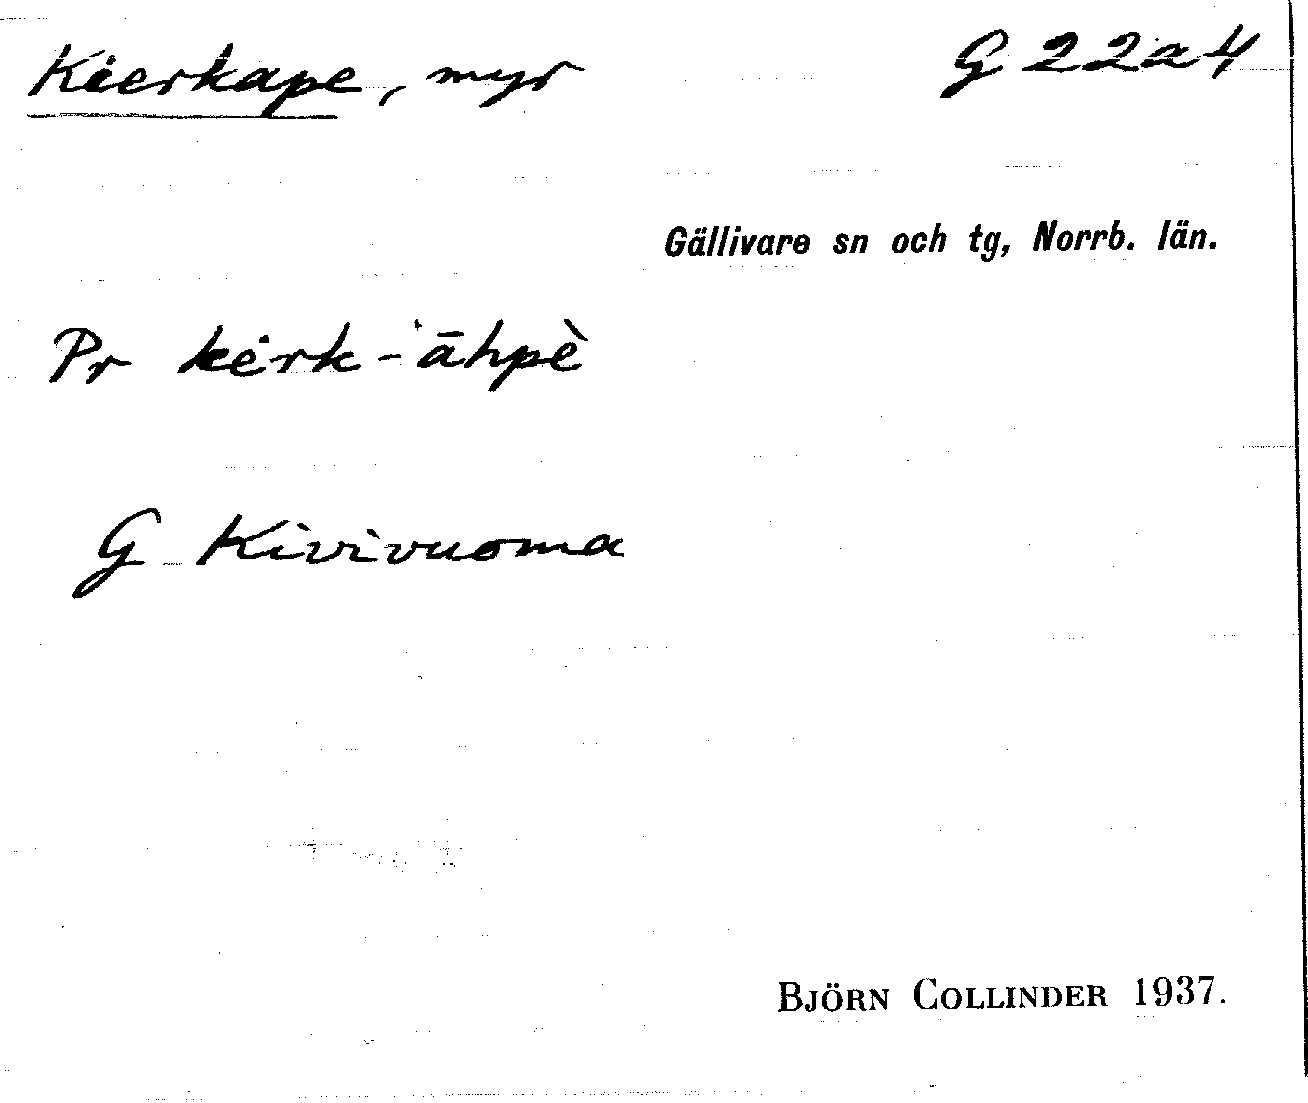 Kierkape, myr G 22a4
Gällivare sn och tg, Norrb. län.
Pr kėrk-'āhpè
G Kivivuoma
BJÖRN COLLINDER 1937.